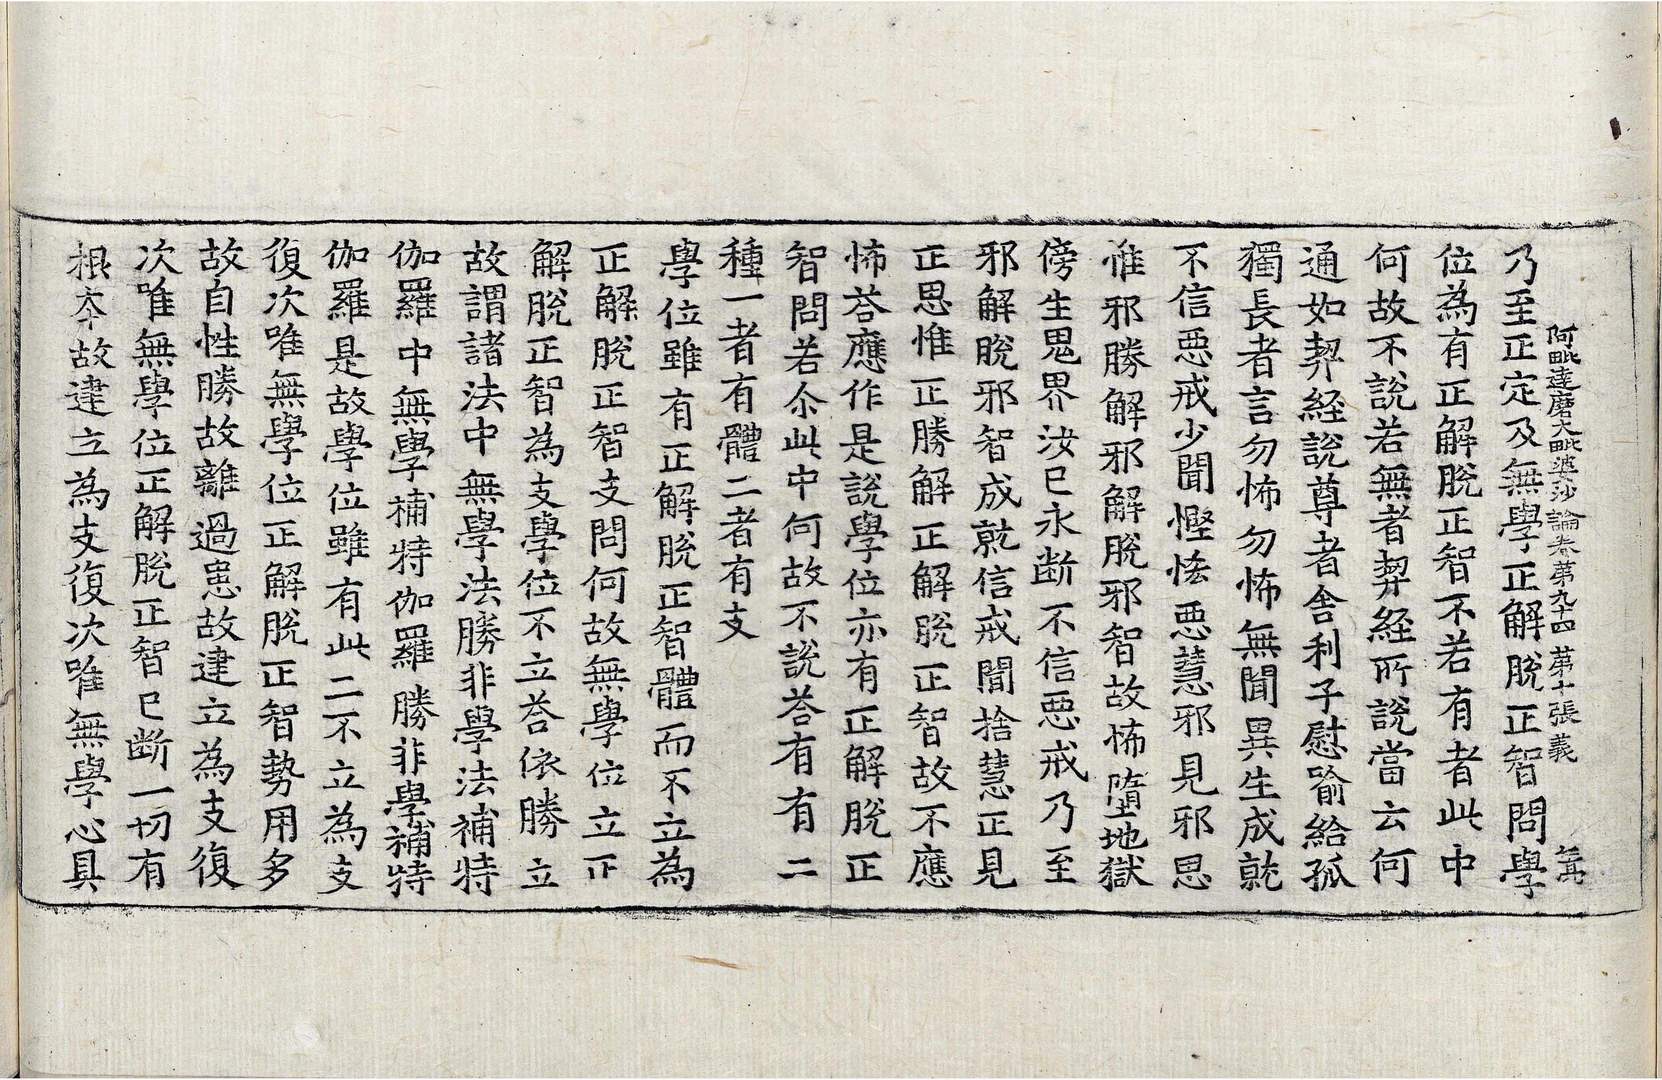 阿毗達磨大毗婆沙論卷第九十四 第十張 義
乃至正定及無學正解脫正智問學
位為有正解脫正智不若有者此中
何故不說若無者契經所說當云何
通如契經說尊者舍利子慰喻給孤
獨長者言勿怖勿怖無聞異生成就
不信惡戒少聞慳悋惡慧邪見邪思
惟邪勝解邪解脫邪智故怖墮地獄
傍生鬼界汝已永断不信惡戒乃至
邪解脫邪智成就信戒聞捨慧正見
正思惟正勝解正解脫正智故不應
怖荅應作是說學位亦有正解脫正
智問若尒此中何故不說荅有有二
種一者有體二者有支
學位雖有正解脫正智體而不立為
正解脫正智支問何故無學位立正
解脫正智為支學位不立荅依勝立
故謂諸法中無學法勝非學法補特
伽羅中無學補特伽羅勝非學補特
伽羅是故學位雖有此二不立為支
復次唯無學位正解脫正智勢用多
故自性勝故離過患故建立為支復
次唯無學位正解脫正智已断一切有
根夲故建立為支復次唯無學心具